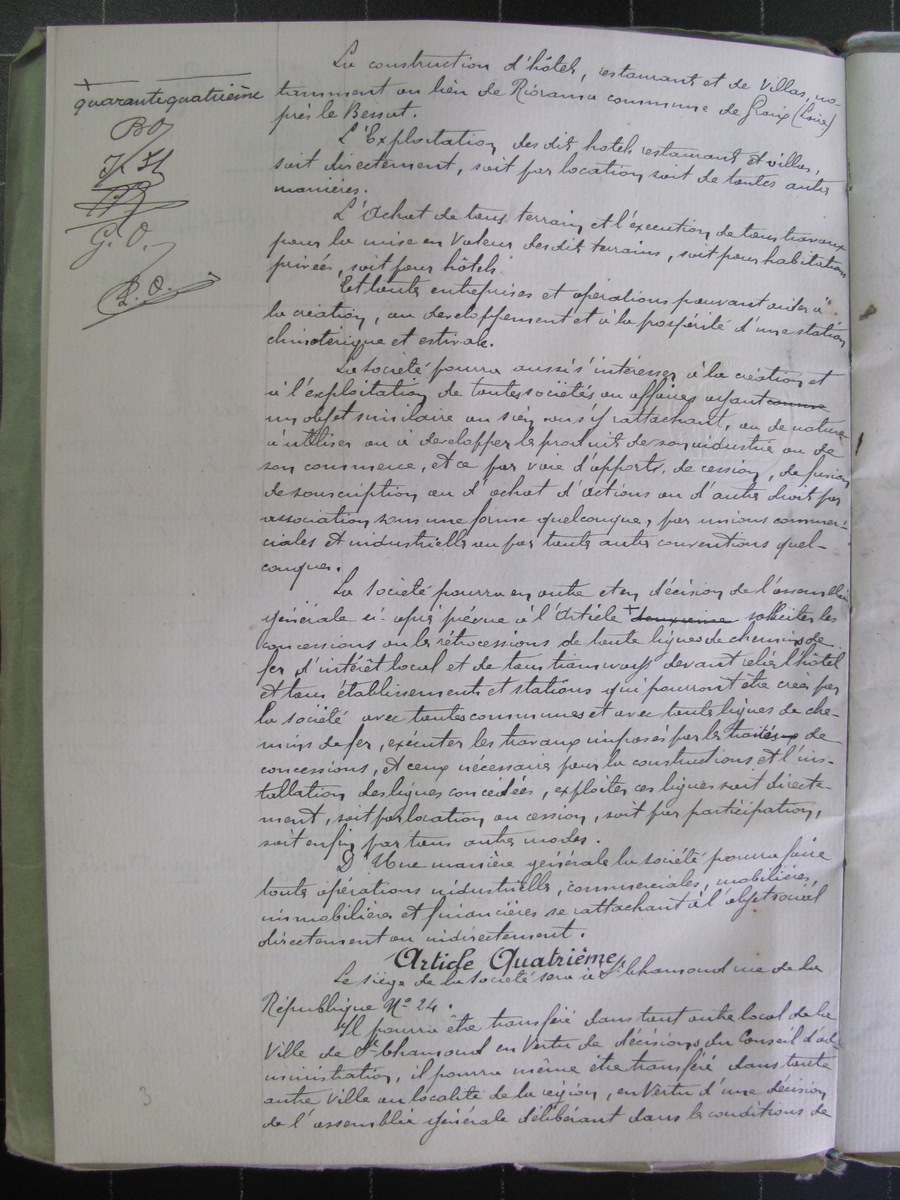 +
quarante quatrième
G. O.
La construction d'hôtels, restaurant et de Villas, no-
tamment au lieu de commune de Graix (Loire)
près le Bessat.
L'Exploitation des dits hotels restaurant et villas,
soit directement, soit par location soit de toutes autres
manières.
L'Achat de tous terrain et l'exécution de tous travaux
pour la mise en Valeur des dit terrains, soit pour habitation
privées, soit pour hôtels.
Et toutes entreprises et opérations pouvant aider à
la création, au developpement et à la prospérité d'une station
climaterique et estivale.
La société pourra aussi s'intéresser à la création et
à l'exploitation de toutes sociétés ou affaires ayant comme
un objet similaire au sien ou s'y rattachant, ou de nature
à utiliser ou à developper les produits de son industrie ou de
son commerce, et ce par voie d'apports, de cession, de fusion
de souscription ou d'achat d'actions ou d'autre droit par
association sous une forme quelconque, par unions commer-
ciales et industrielles ou par toute autre conventions quel-
conques.
La société pourra en outre et en décision de l'assemblée
générale ci-après prévue à l'Article + solliciter les
concessions ou les rétrocessions de toute lignes de chemins de
fer d'intérêt local et de tous tramways devant relier l'hôtel
et tous établissements et stations qui pourront être créés par
la société avec toutes communes et avec toute lignes de che-
mins de fer, exécuter les travaux imposés par les traités de
concessions, et ceux nécessaire pour la constructions et l'ins-
tallation des lignes concédées, exploiter ces lignes soit directe-
ment, soit par location ou cession, soit par participation,
soit enfin par tous autres modes.
D'Une manière générale la société pourra faire
toute opérations industrielles, commerciales, mobilières,
immobilières et financières se rattachant à l'objet social
directement ou indirectement.
Article Quatrième
Le siège de la société sera à St Chamond rue de la
République No 24.
Il pourra être transféré dans tout autre local de la
Ville de St Chamond en Vertu de décisions du Conseil d'ad-
ministration, il pourra même être transféré dans toute
autre Ville ou localité de la région, en Vertu d'une décision
de l'assemblée générale délibérant dans les conditions de
3